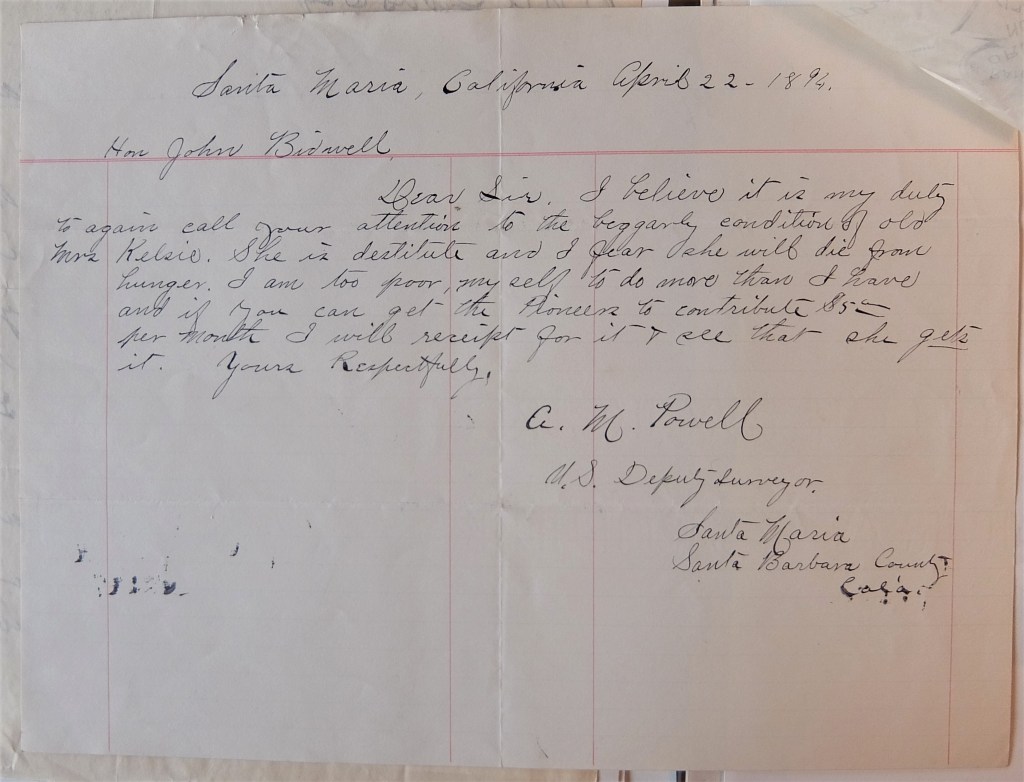 Santa Maria, California April 22 - 1894.
Hon John Bidwell,
Dear Sir. I believe it is my duty
to again call your attention to the beggarly condition of old
Mrs Kelsie. She is destitute and I fear she will die from
hunger. I am too poor, my self to do more than I have
and if you can get the Pioneers to contribute $5
per month I will receipt for it & see that she gets
it. Yours Respectfully,
A. M. Powell
U.S. Deputy Surveyor.
Santa Maria
Santa Barbara County
Cala.